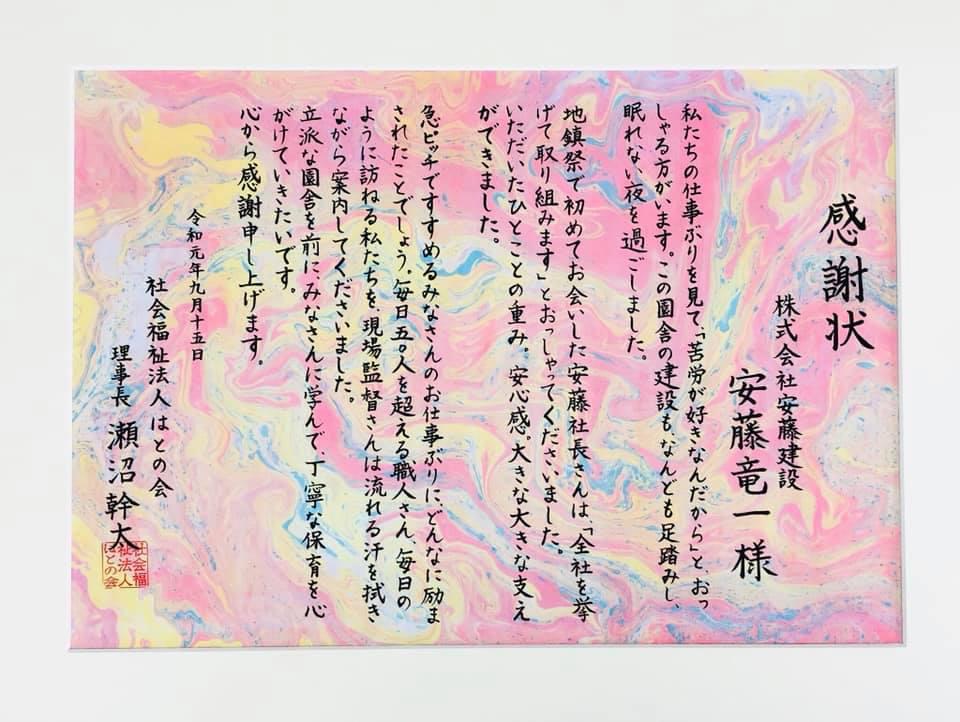 感謝状
株式会社安藤建設
安藤竜一様
私たちの仕事ぶりを見て、「苦労が好きなんだから」とおっ
しゃる方がいます。この園舎の建設も、なんども足踏みし、
眠れない夜を過ごしました。
地鎮祭で初めてお会いした安藤社長さんは「全社を挙
げて取り組みます」とおっしゃってくださいました。
いただいたひとことの重み。安心感。大きな大きな支え
ができました。
急ピッチですすめるみなさんのお仕事ぶりに、どんなに励ま
されたことでしょう。毎日五〇人を超える職人さん、毎日の
ように訪ねる私たちを、現場監督さんは流れる汗を拭き
ながら案内してくださいました。
立派な園舎を前に、みなさんに学んで、丁寧な保育を心
がけていきたいです。
心から感謝申し上げます。
令和元年九月十五日
社会福祉法人はとの会
理事長 瀬沼幹太
社会福
祉法人
はとの会